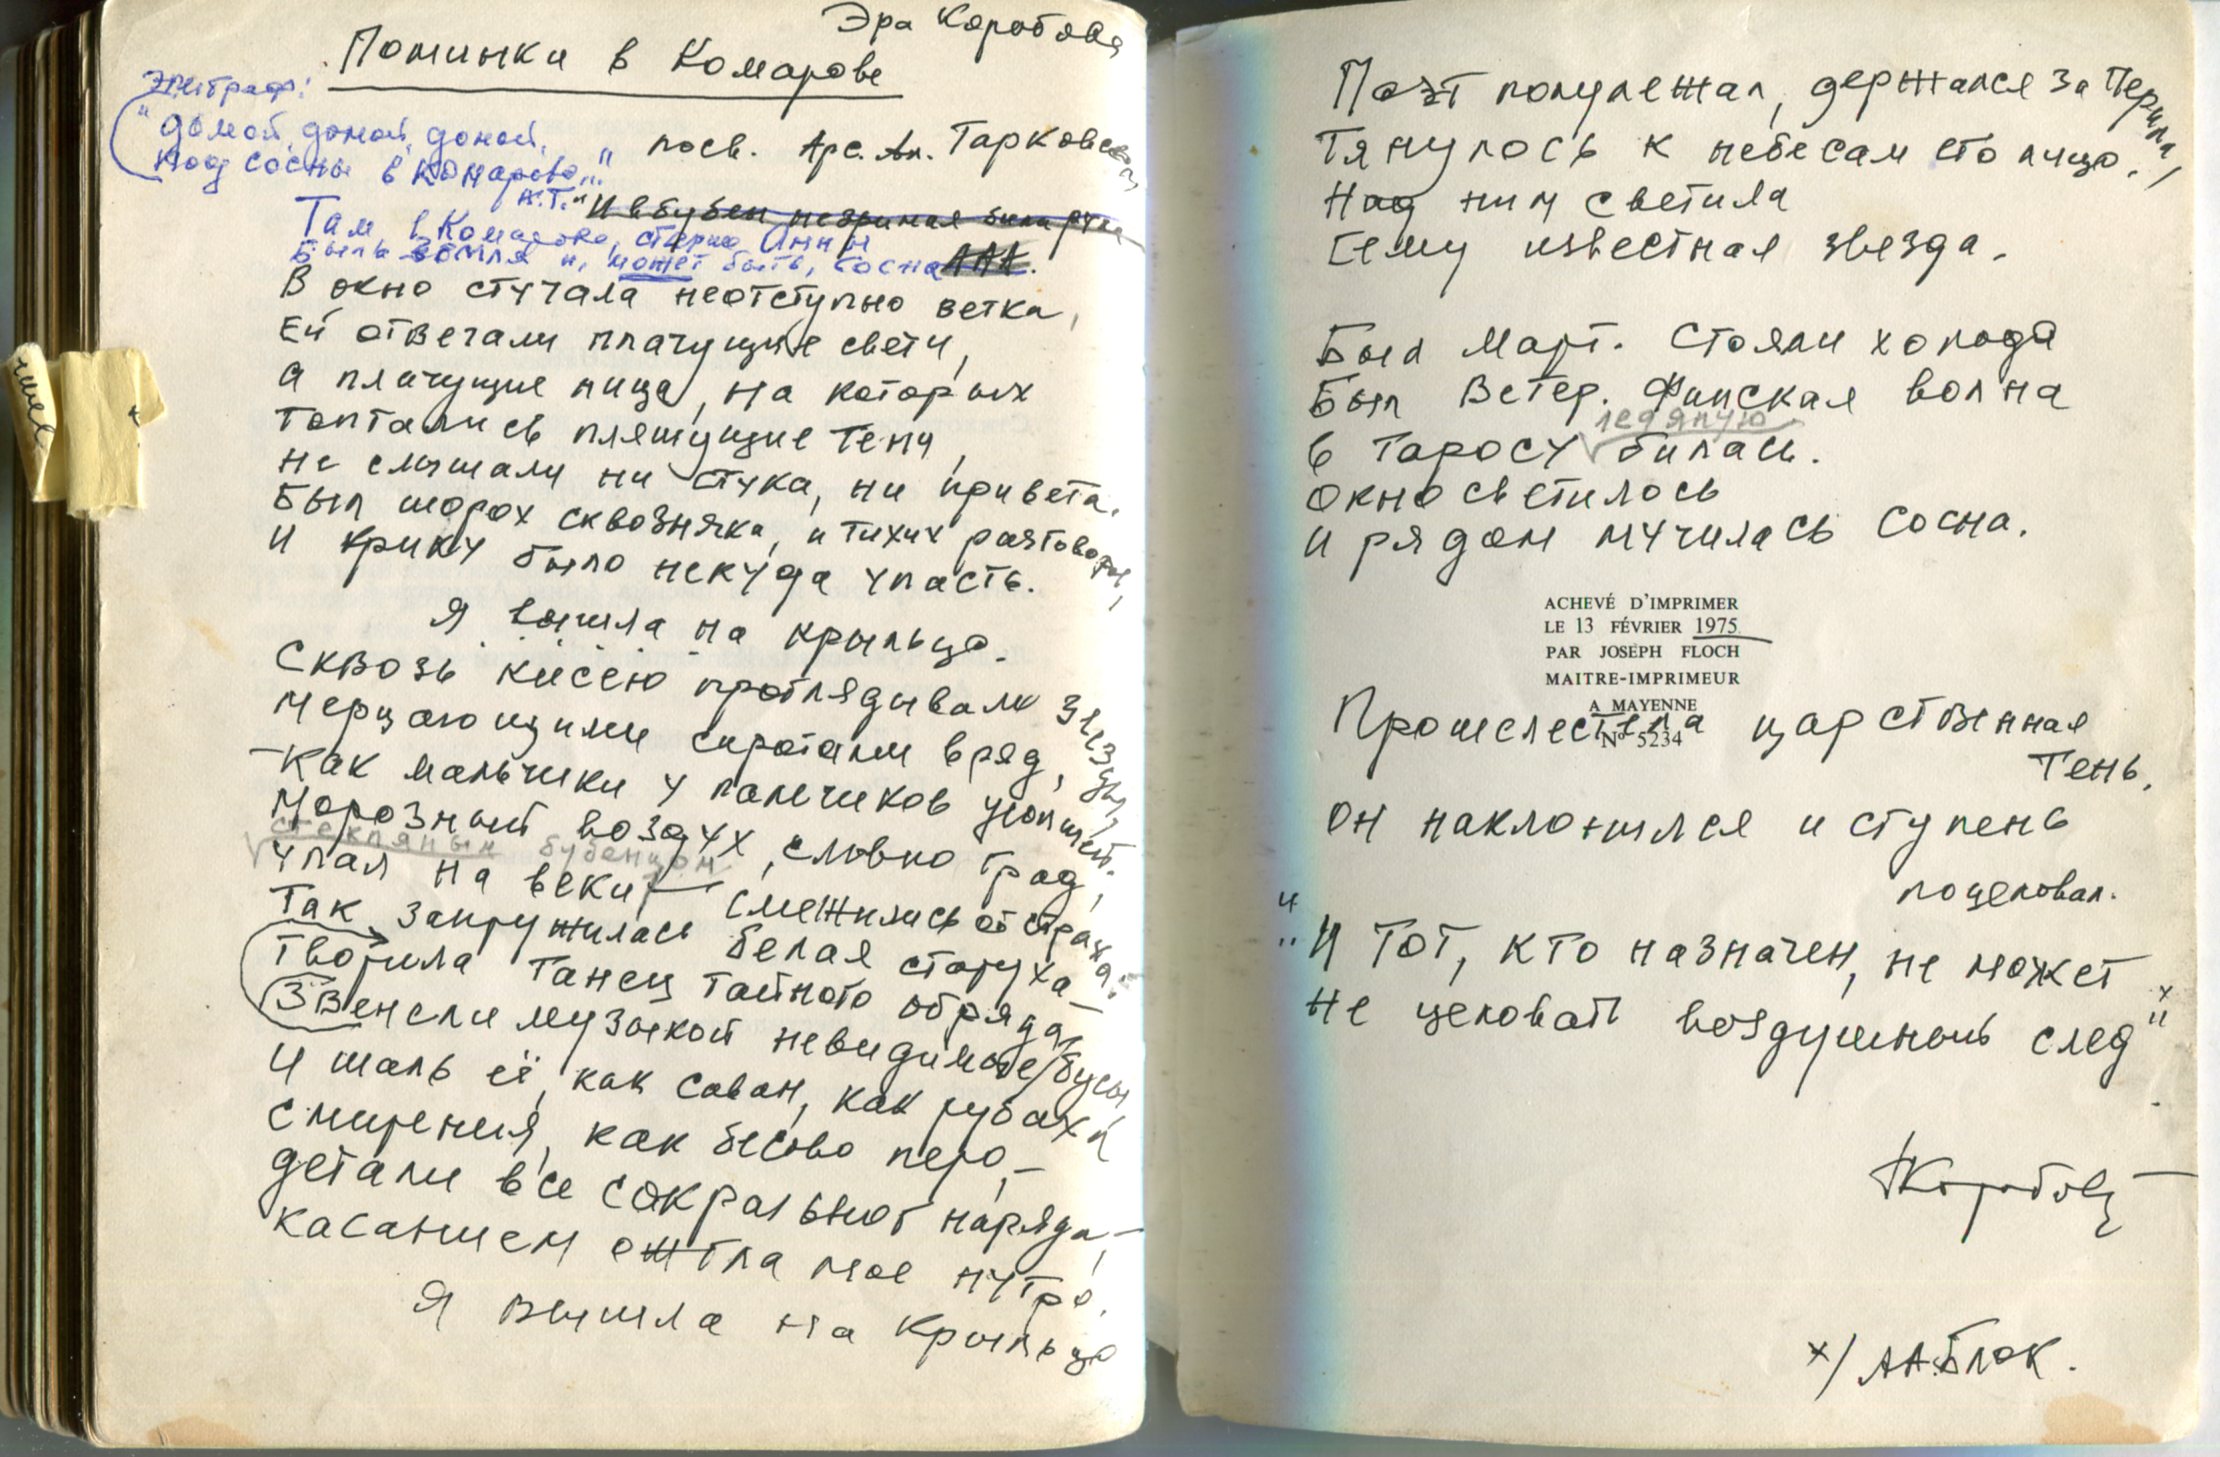 Эра Коробова
Поминки в Комарове
Эпиграф:
"домой, домой, домой,
под сосны в Комарово..."
А.Т.
посв. Арс. Ал. Тарковскому
"И в бубен незримая била рука
ААА.
Там, в Комарове, стерио Анны
Быль земля и, может быть, сосна
В окно стучала неотступно ветка,
Ей отвечали плачущие свечи,
а плачущие лица, на которых
топтались пляшущие тени,
не слышали ни стука, ни привета.
Был шорох сквозняка, и тихих разговоров,
и крику было некуда упасть.
Я вышла на крыльцо.
Сквозь кисею проглядывали звезды,
мерцающими сиротами в ряд,
– как мальчики у пальчиков усопшей.
Морозный воздух, словно град,
стеклянным бубенцом
упал на веки – смежились от страха.
Так закружилась белая старуха –
Творила танец тайного обряда,
Звенели музыкой невидимые бусы,
И шаль её, как саван, как рубаха
смирения, как бесово перо, –
детали все сакрального наряда, –
касанием ожгла мое нутро.
Я вышла на крыльцо
Поэт полулежал, держался за перила,
Тянулось к небесам его лицо.
Над ним светила
Ему известная звезда.
Был Март. Стояли холода
Был Ветер. Финская волна
ледяную
в торосу билась.
окно светилось
и рядом мучилась сосна.
ACHEVÉ D'IMPRIMER
LE 13 FÉVRIER 1975
PAR JOSEPH FLOCH
MAITRE-IMPRIMEUR
A MAYENNE
N° 5234
Прошелестела царственная
тень,
он наклонился и ступень
поцеловал.
"И тот, кто назначен, не может
Не целовать воздушный след" х
Коробова
х/ АА.Блок.